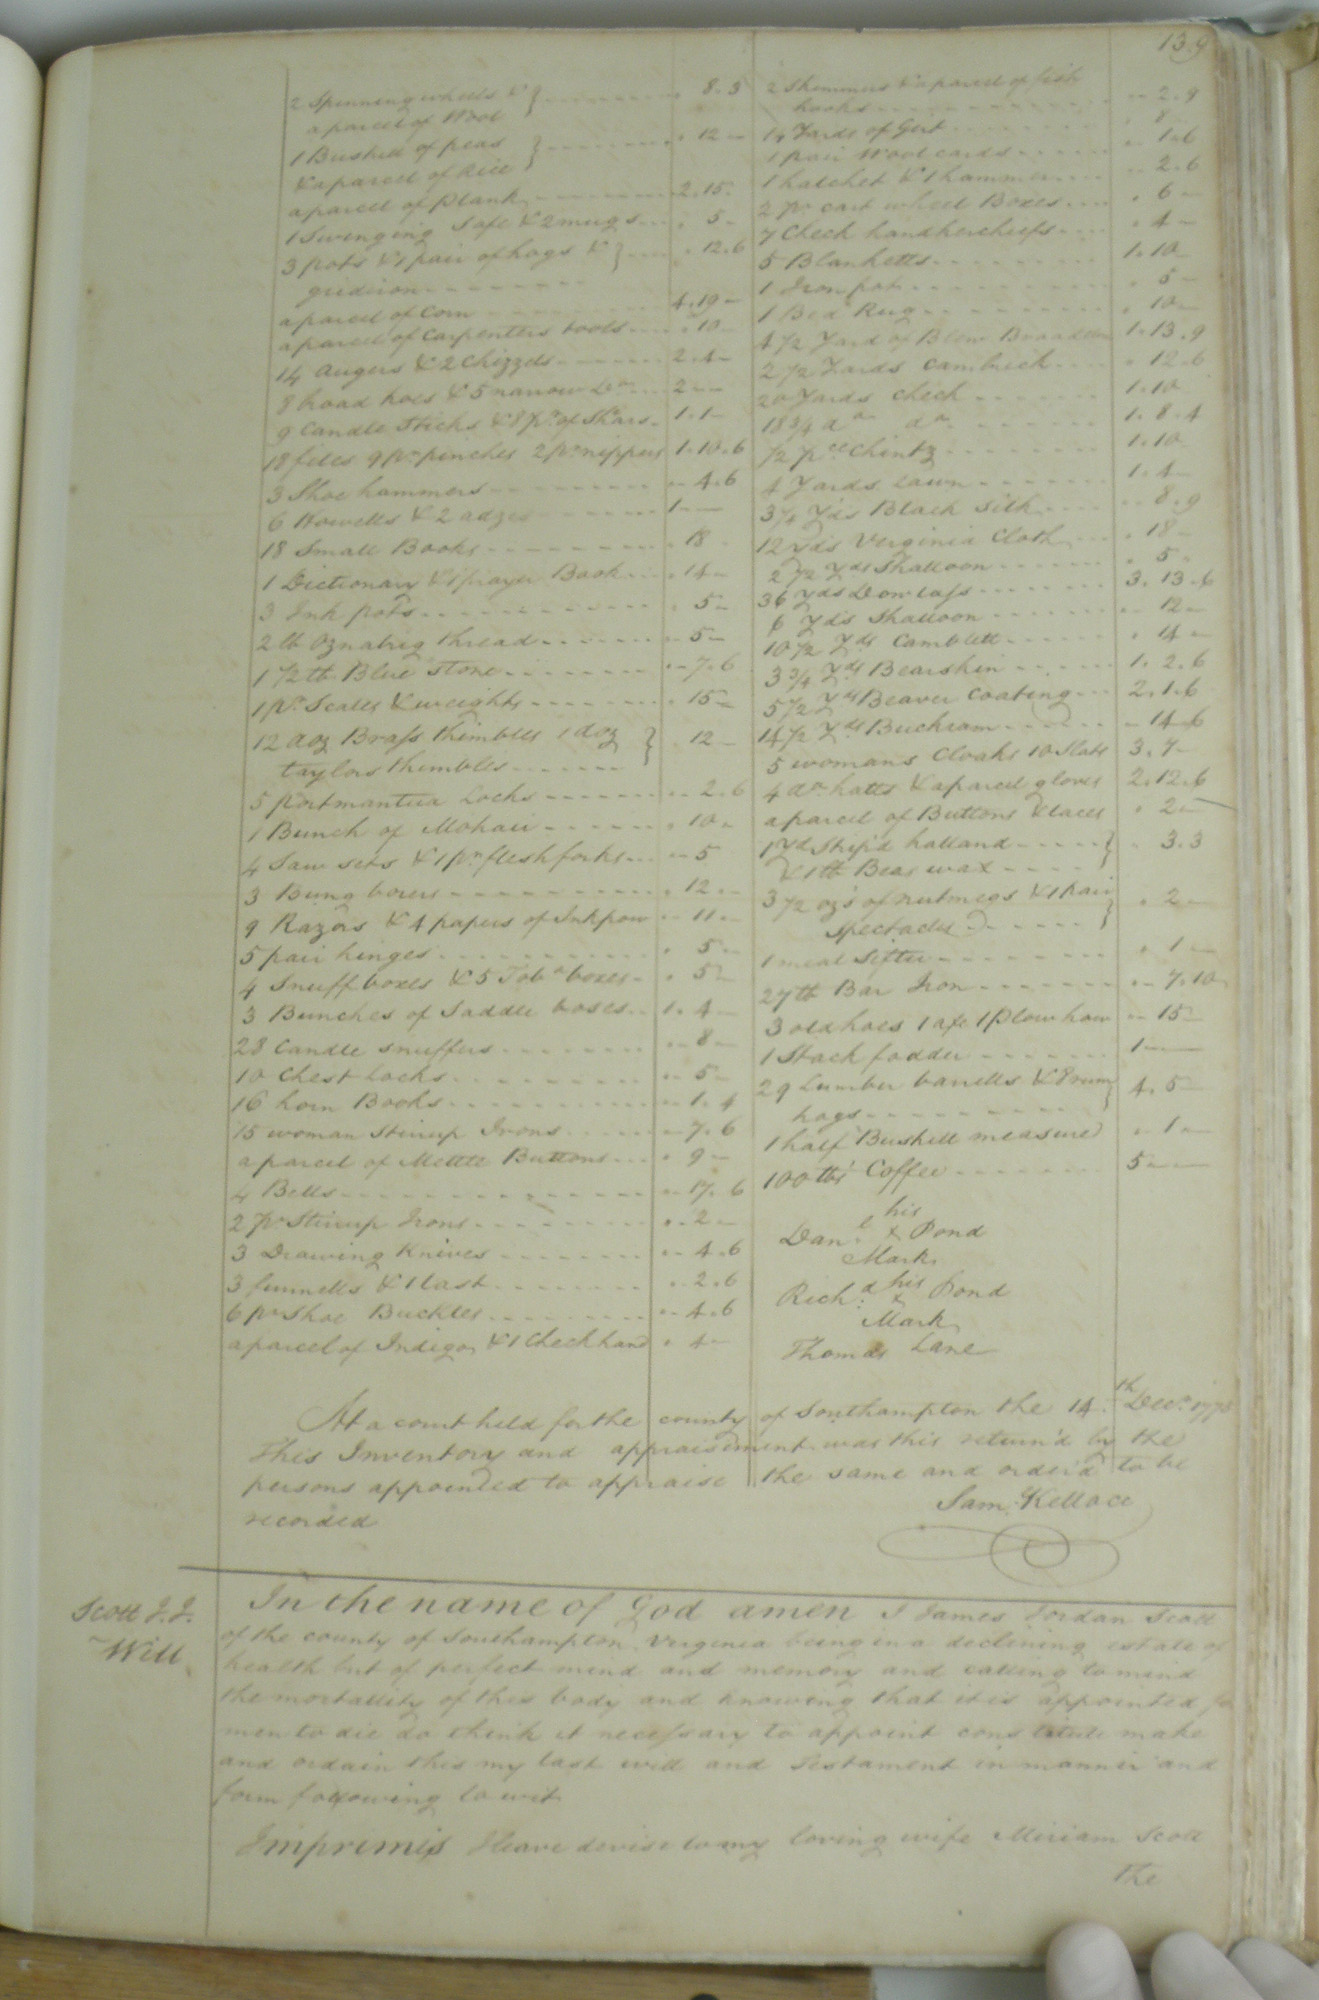 139
2 Spinning wheels & } - - - - - - . 8. 3
a parcel of Wool
1 Bushell of peas } - - - - - . 12 -
& a parcel of Rice
a parcel of plank - - - - - 2. 15.
1 Swinging Safe & 2 mugs - - . 5 -
3 pots & 1 pair of hags & } - - . 12. 6
gridiron - - - - - -
a parcel of Corn - - - - - 4. 19 -
a parcel of Carpenters tools - - - . 10 -
14 Augers & 2 Chizzels - - - - 2. 4 -
8 broad hoes & 5 narrow Do - - 2 - -
9 Candle Sticks & 8 pr. of Shears - 1. 1 -
18 files 9 pr. pinches 2 pr. nippers 1. 10. 6
3 Shoe hammers - - - - - - . 4. 6
6 Howells & 2 adzes - - - - 1 - -
18 Small Books - - - - - - . 18 -
1 Dictionary & 1 prayer Book - - - . 14 -
3 Ink pots - - - - - - . 5 -
2 lb Oznabrig thread - - - - . 5 -
1 1/2 lb Blue stone - - - - - - . 7. 6
1 pr. Scales & weights - - - - - . 15 -
12 doz Brass thimbles 1 doz } . 12 -
taylors thimbles - - - - -
5 portmantua Locks - - - - - - . 2. 6
1 Bunch of Mohair - - - - - . 10 -
4 Saw sets & 1 pr. flesh forks - - - . 5
3 Bung borers - - - - - - . 12 -
9 Razors & 4 papers of Inkpow - . 11 -
5 pair hinges - - - - - - . 5 -
4 Snuff boxes & 5 Tobo boxes - . 5 -
3 Bunches of Saddle boses - - 1. 4 -
28 Candle snuffers - - - - - . 8 -
10 Chest Locks - - - - - - . 5 -
16 horn Books - - - - - - . 1. 4
15 woman Stirrup Irons - - - . 7. 6
a parcel of Mettle Buttons - - - . 9 -
4 Bells - - - - - - - . 17. 6
2 pr Stirrup Irons - - - - - . 2 -
3 Drawing Knives - - - - - . 4. 6
3 funnells & 1 last - - - - - . 2. 6
6 pr Shoe Buckles - - - - - . 4. 6
a parcel of Indigo & 1 Check hand . 4 -
2 Skimmers & a parcel of fish
hooks - - - - - - . 2. 9
14 Yards of Girt - - - - - . 8 -
1 pair Wool cards - - - - - . 1. 6
1 hatchet & 1 hammer - - - - . 2. 6
2 pr. cart wheel Boxes - - - . 6 -
7 Check handkercheifs - - - . 4 -
5 Blanketts - - - - - - 1. 10 -
1 Iron pot - - - - - - . 5 -
1 Bed Rug - - - - - - . 10 -
4 1/2 Yard of Blew Broadcloth 1. 13. 9
2 1/2 Yards cambrick - - - - . 12. 6
20 Yards check - - - - - 1. 10
18 3/4 do do - - - - - 1. 8. 4
1/2 pce Chintz - - - - - 1. 10
4 Yards Lawn - - - - - 1. 4 -
3 1/2 Yds Black Silk - - - - . 8. 9
12 yds Virginia Cloth - - - . 18 -
2 1/2 Yds Shalloon - - - - . 5 -
36 Yds Dowlass - - - - - 3. 13. 6
6 Yds Shalloon - - - - - . 12 -
10 1/2 Yds Camblett - - - - . 14 -
3 3/4 Yds Bearskin - - - - 1. 2. 6
5 1/2 Yds Beaver Coating - - - 2. 1. 6
14 1/2 Yds Buckram - - - - . 14. 6
5 womans Cloaks 10 Slats 3. 7 -
4 do hatts & a parcel gloves 2. 12. 6
a parcel of Buttons & laces . 2 -
1 Yd Strip'd holland - - - - } . 3. 3
& 1 lb Bees wax - - - -
3 1/2 ozs of nutmegs & 1 pair } . 2 -
Spectacles - - - - - -
1 meal Sifter - - - - - - . 1 -
27 lb Bar Iron - - - - - - . 7. 10
3 old hoes 1 axe 1 Plow how . 15 -
1 Stack fodder - - - - - 1 - -
29 Lumber barrells & 8 rum } 4. 5 -
hogs - - - - - - -
1 half Bushell measured . 1 -
100 lbs Coffee - - - - - 5 - -
his
Danl. x Pond
Mark
Richd. his x Pond
Mark
Thomas Lane
At a court held for the county of Southampton the 14th Decr. 1778
This Inventory and appraisement was this return'd by the
persons appointed to appraise the same and order'd to be
recorded
Sam Kello CC
Scott J. J.
Will
In the name of God amen I James Jordan Scott
of the county of Southampton Virginia being in a declining estate of
health but of perfect mind and memory and calling to mind
the mortallity of this body and knowing that it is appointed for
men to die do think it necessary to appoint constitute make
and ordain this my last will and Testament in manner and
form following to wit
Imprimis I leave devise to my loving wife Miriam Scott
the